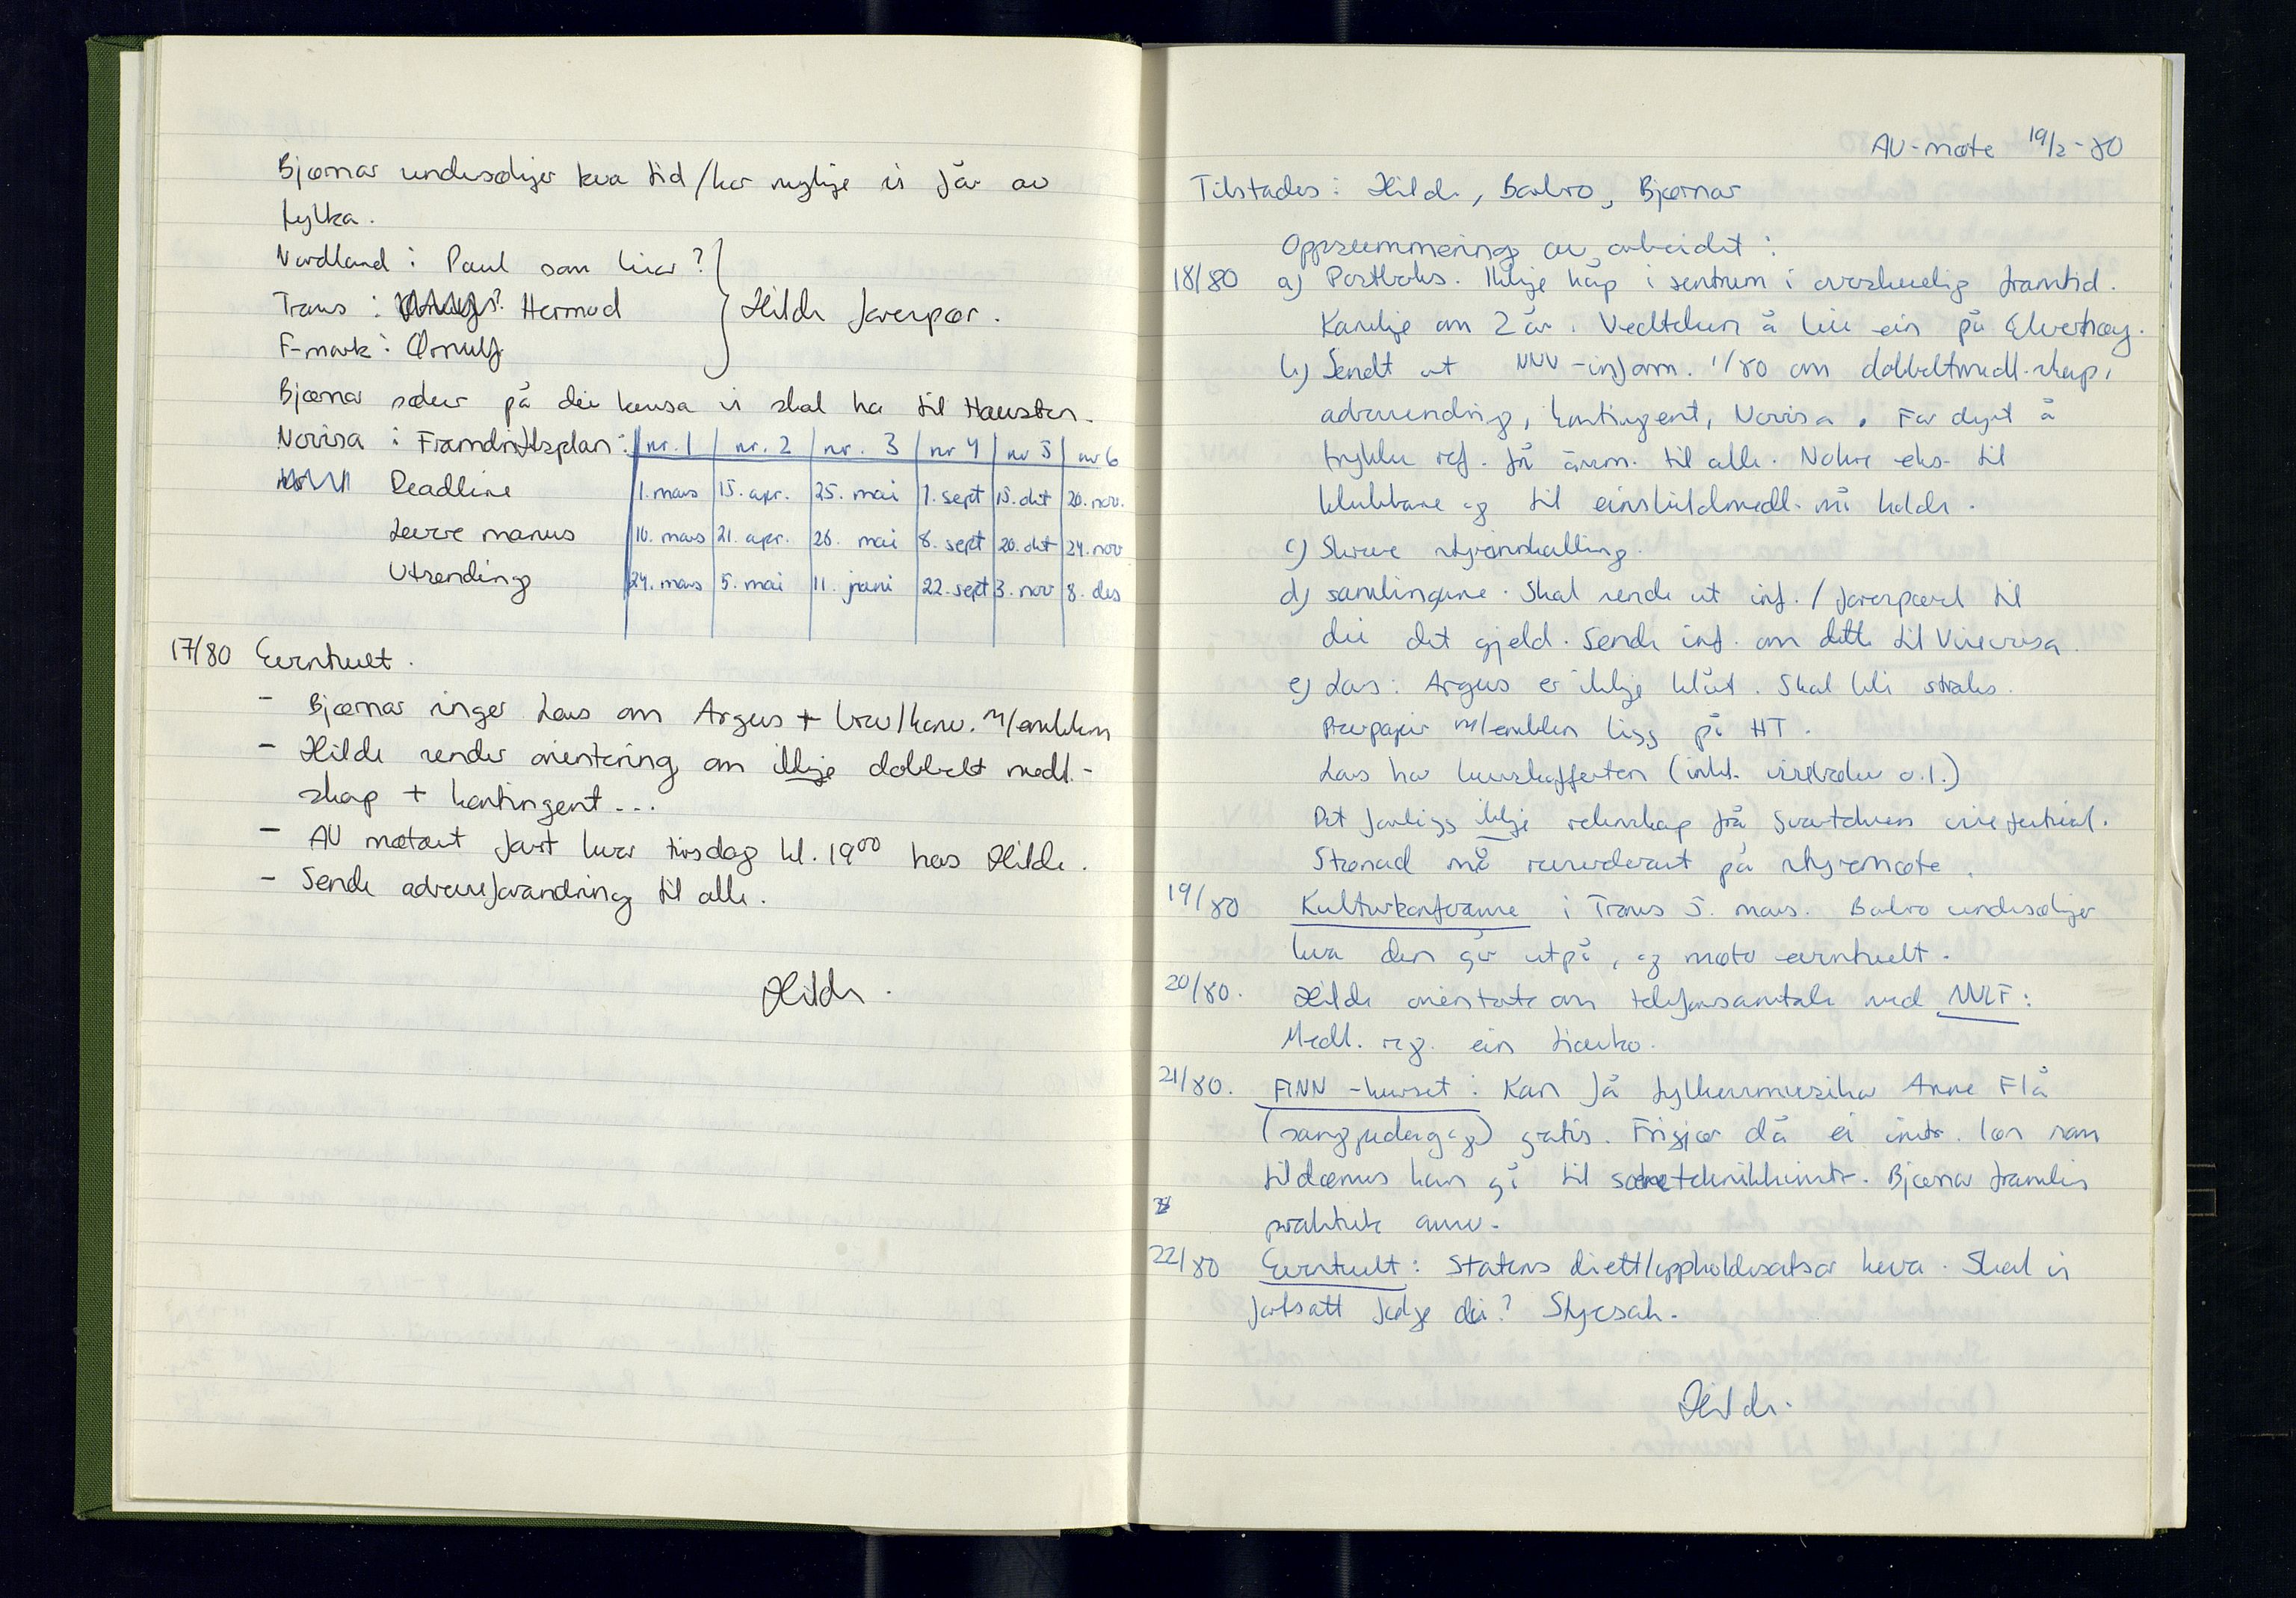 Bjørnar undersøkjer kva tid/kor mykje vi får av
fylka.
Nordland : Paul som hiar ?
Troms : Hermod
F-mark : Ørnulf
Hilde forespør.
Bjørnar søker på dei kursa vi skal ha til Hausten.
Norvisa : Framdriftsplan: nr. 1 nr. 2 nr. 3 nr 4 nr 5 nr 6
Deadline 1. mars 15. apr. 25. mai 1. sept 15. okt 20. nov.
Levere manus 10. mars 21. apr. 28. mai 8. sept 20. okt 24. nov
Utsending 24. mars 5. mai 11. juni 22. sept 3. nov 8. des
17/80 Eventuelt.
- Bjørnar ringer Lars om Argus + brev/konv. m/emblem
- Hilde sender orientering om ikkje dobbelt medl.-
skap + kontingent...
- AU møtest fast kvar tirsdag kl. 19⁰⁰ hos Hilde.
- Sende adresseforandring til alle.
Hilde.
AU-møte 19/2-80
Tilstades : Hilde, Barbro, Bjørnar
Oppsummering av arbeidet :
18/80 a) Postboks. Ikkje håp i sentrum i overskuelig framtid.
Kanskje om 2 år. Vedteken å leie ein på Elverhøy.
b) Sendt ut NNV-inform. 1/80 om dobbeltmedl.skap,
adresseendring, kontingent, Norvisa. For dyrt å
trykke ref. frå årsm. til alle. Nokre eks. til
klubbane og til einskildmedl. må holde.
c) Skrive styreinnkalling.
d) samlingane. Skal sende ut inf. / forespørsel til
dei det gjeld. Sende inf. om dette til Viseversa.
e) Lars : Argus er ikkje klart. Skal bli straks.
Brevpapir m/emblem ligg på HT.
Lars har kurskofferten (inkl. visebøker o.l.)
Det forligg ikkje rekneskap frå Svartdven visefestival.
Strønad må revurderast på styremøte.
19/80 Kulturkonferanse i Troms 5. mars. Barbro undersøkjer
kva den går utpå, og møter eventuelt.
20/80. Hilde orienterte om telefonsamtale med NVLF :
Medl. reg. ein tiarko.
21/80. FINN-kurset : Kan få fylkesmusikar Anne Flå
(sangpedagog) gratis. Frigjør då ei instr. løn som
tildømes kan gå til sceneteknikkinstr. Bjørnar framleis
praktisk ansv.
22/80 Eventuelt : Statens diett/oppholdssatsar heva. Skal vi
fortsatt følgje dei? Styresak.
Hilde.